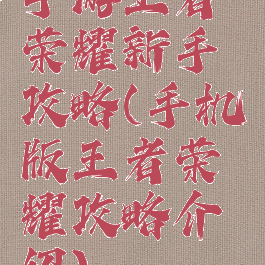 手游王者
荣耀新手
攻略(手机
版王者荣
耀攻略介
绍)